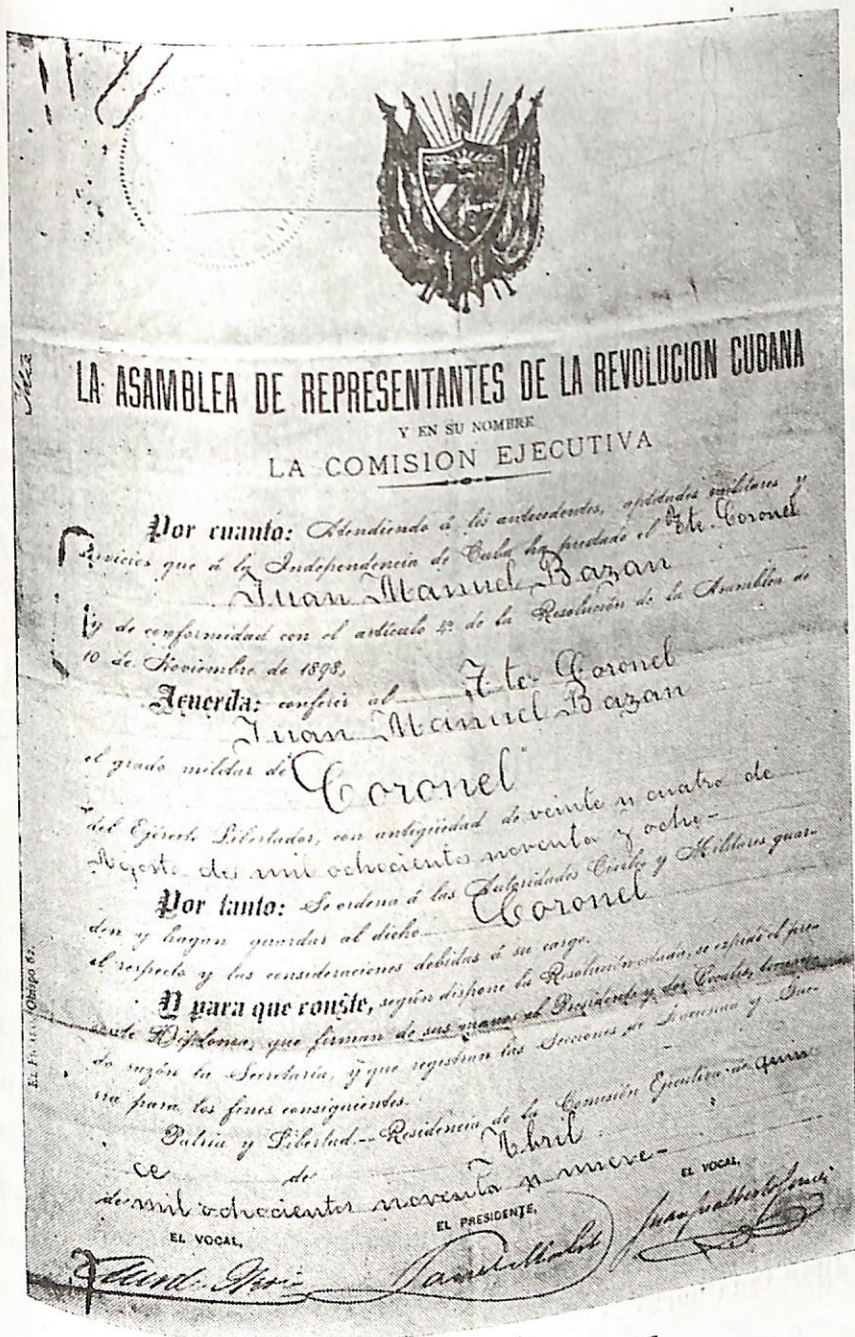 LA ASAMBLEA DE REPRESENTANTES DE LA REVOLUCION CUBANA
Y EN SU NOMBRE
LA COMISION EJECUTIVA
Por cuanto: Atendiendo á los antecedentes, aptitudes militares y
servicios que á la Independencia de Cuba ha prestado el Tte. Coronel
Juan Manuel Bazan
y de conformidad con el artículo 4º de la Resolución de la Asamblea de
10 de Noviembre de 1898,
Acuerda: conferir al Tte. Coronel
Juan Manuel Bazan
el grado militar de Coronel
del Ejército Libertador, con antigüedad de veinte y cuatro de
Agosto de mil ochocientos noventa y ocho-
Por tanto: Se ordena á las Autoridades Civiles y Militares guar-
den y hagan guardar al dicho Coronel
el respeto y las consideraciones debidas á su cargo.
Y para que conste, según dispone la Resolución citada, se expide el pre-
sente Diploma, que firman de sus manos el Presidente y dos Vocales, toman-
do razón la Secretaría, y que registran las Secciones de Hacienda y Gue-
rra para los fines consiguientes.
Patria y Libertad.—Residencia de la Comisión Ejecutiva á quin
ce de Abril
de mil ochocientos noventa y nueve-
EL VOCAL,
EL PRESIDENTE,
EL VOCAL,
Juan Gualberto Gómez
Obispo 62.